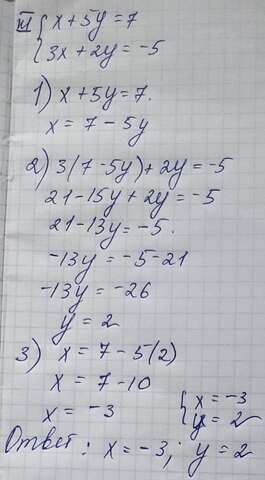 VI { x + 5y = 7
3x + 2y = -5
1) x + 5y = 7.
x = 7 - 5y
2) 3(7 - 5y) + 2y = -5
21 - 15y + 2y = -5
21 - 13y = -5.
-13y = -5 - 21
-13y = -26
y = 2
3) x = 7 - 5(2)
x = 7 - 10
x = -3
{ x = -3
y = 2
Ответ: x = -3; y = 2